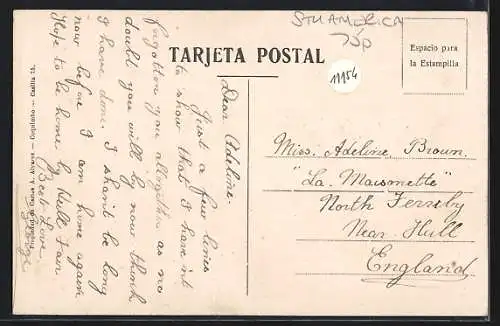 STH AMERICA
75p
TARJETA POSTAL
11954
Espacio para
la Estampilla
Dear Adeline.
Just a few lines
to show that I have'nt
forgotten you altogether as no
doubt you will by now think
I have done. I shan't be long
now before I am home again
Hope to be home by Hull Fair
Best Love.
George
Miss. Adeline. Brown.
"La Maisonette"
North Ferriby
Near Hull
England
Propiedad de Carlos A. Alvarez — Coquimbo — Casilla 15.